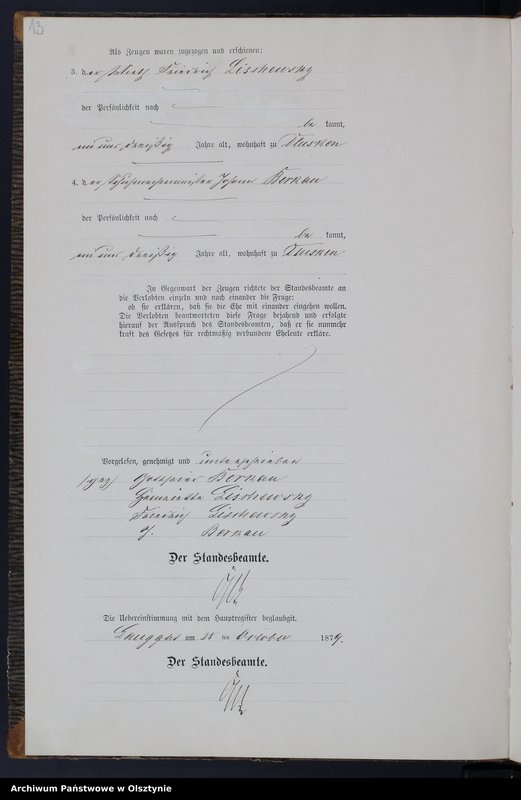 13
Als Zeugen waren zugezogen und erschienen:
3. der Friedrich Lischewsky
der Persönlichkeit nach
be kannt,
ein und dreißig Jahre alt, wohnhaft zu
4. der Schuhmachermeister Johann Borkau
der Persönlichkeit nach
be kannt,
ein und dreißig Jahre alt, wohnhaft zu
In Gegenwart der Zeugen richtete der Standesbeamte an
die Verlobten einzeln und nach einander die Frage:
ob sie erklären, daß sie die Ehe mit einander eingehen wollen.
Die Verlobten beantworteten diese Frage bejahend und erfolgte
hierauf der Ausspruch des Standesbeamten, daß er sie nunmehr
kraft des Gesetzes für rechtmäßig verbundene Eheleute erkläre.
Vorgelesen, genehmigt und unterschrieben
(gez) Gottfried Borkau
Henriette Lischewsky
Friedrich Lischewsky
J. Borkau
Der Standesbeamte.
Die Uebereinstimmung mit dem Hauptregister beglaubigt.
am ten October 1879.
Der Standesbeamte.
Archiwum Państwowe w Olsztynie